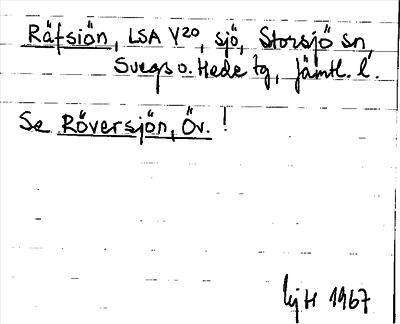 Räfsiön, LSA Y20, sjö, Storsjö sn,
Svegs o. Hede tg, Jämtl. l.
Se Röversjön, Öv. !
1967